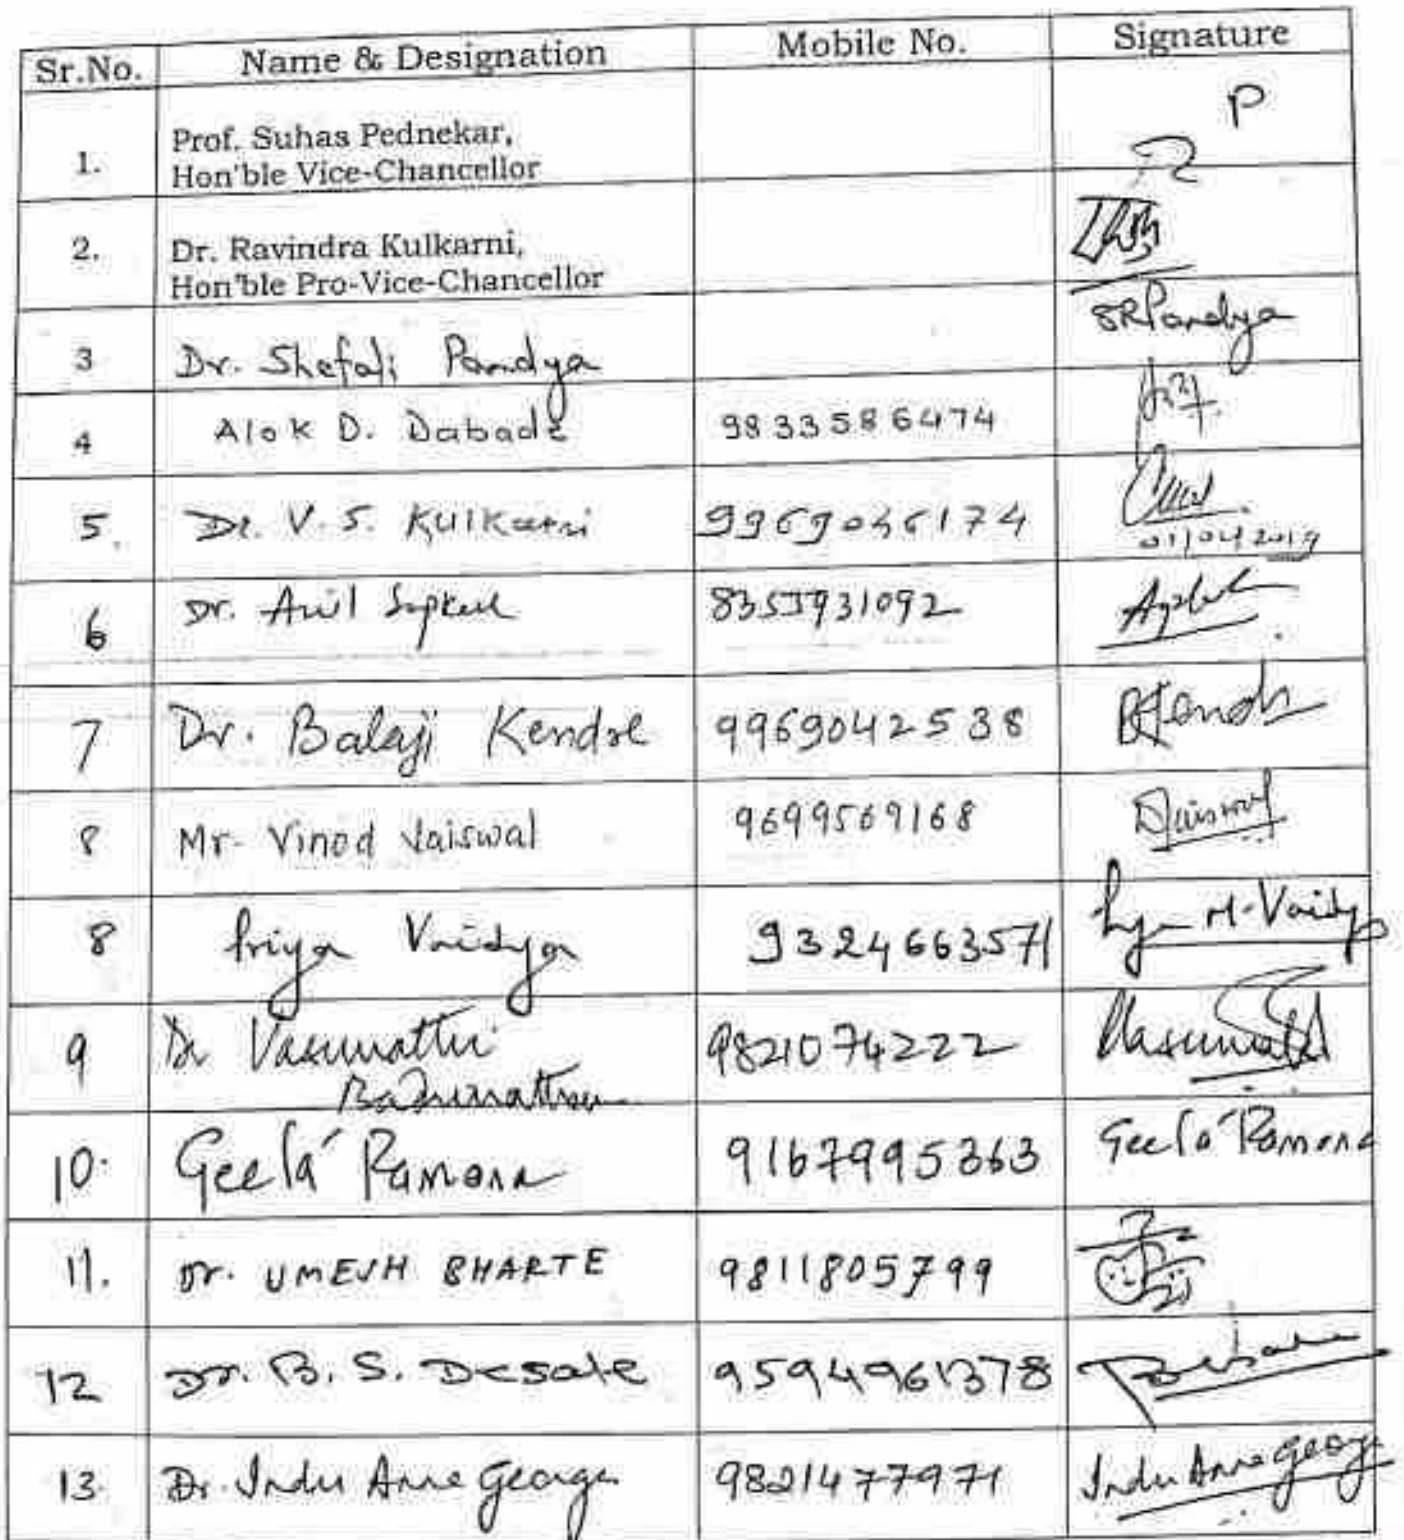 Sr.No. Name & Designation Mobile No. Signature
P
1. Prof. Suhas Pednekar,
Hon'ble Vice-Chancellor
2. Dr. Ravindra Kulkarni,
Hon'ble Pro-Vice-Chancellor
3 Dr. Shefali Pandya SRPandya
4 Alok D. Dabade 9833586474
5. Dr. V. S. Kulkarni 9969046174
01/04/2019
6 Dr. Anil 8355931092
7 Dr. Balaji Kendre 9969042538
8 Mr. Vinod Jaiswal 9699569168 Jaiswal
8 Priya Vaidya 9324663571 Priya M. Vaidya
9 Dr Vasumathi 9821074222 Vasumathi
Badrinathan
10. Geeta Ramana 9167995363 Geeta Ramana
11. Dr. UMESH BHARTE 9811805799
12 Dr. B. S. Desale 9594961378
13. Dr. Indu Anne George 9821477971 Indu Anne George